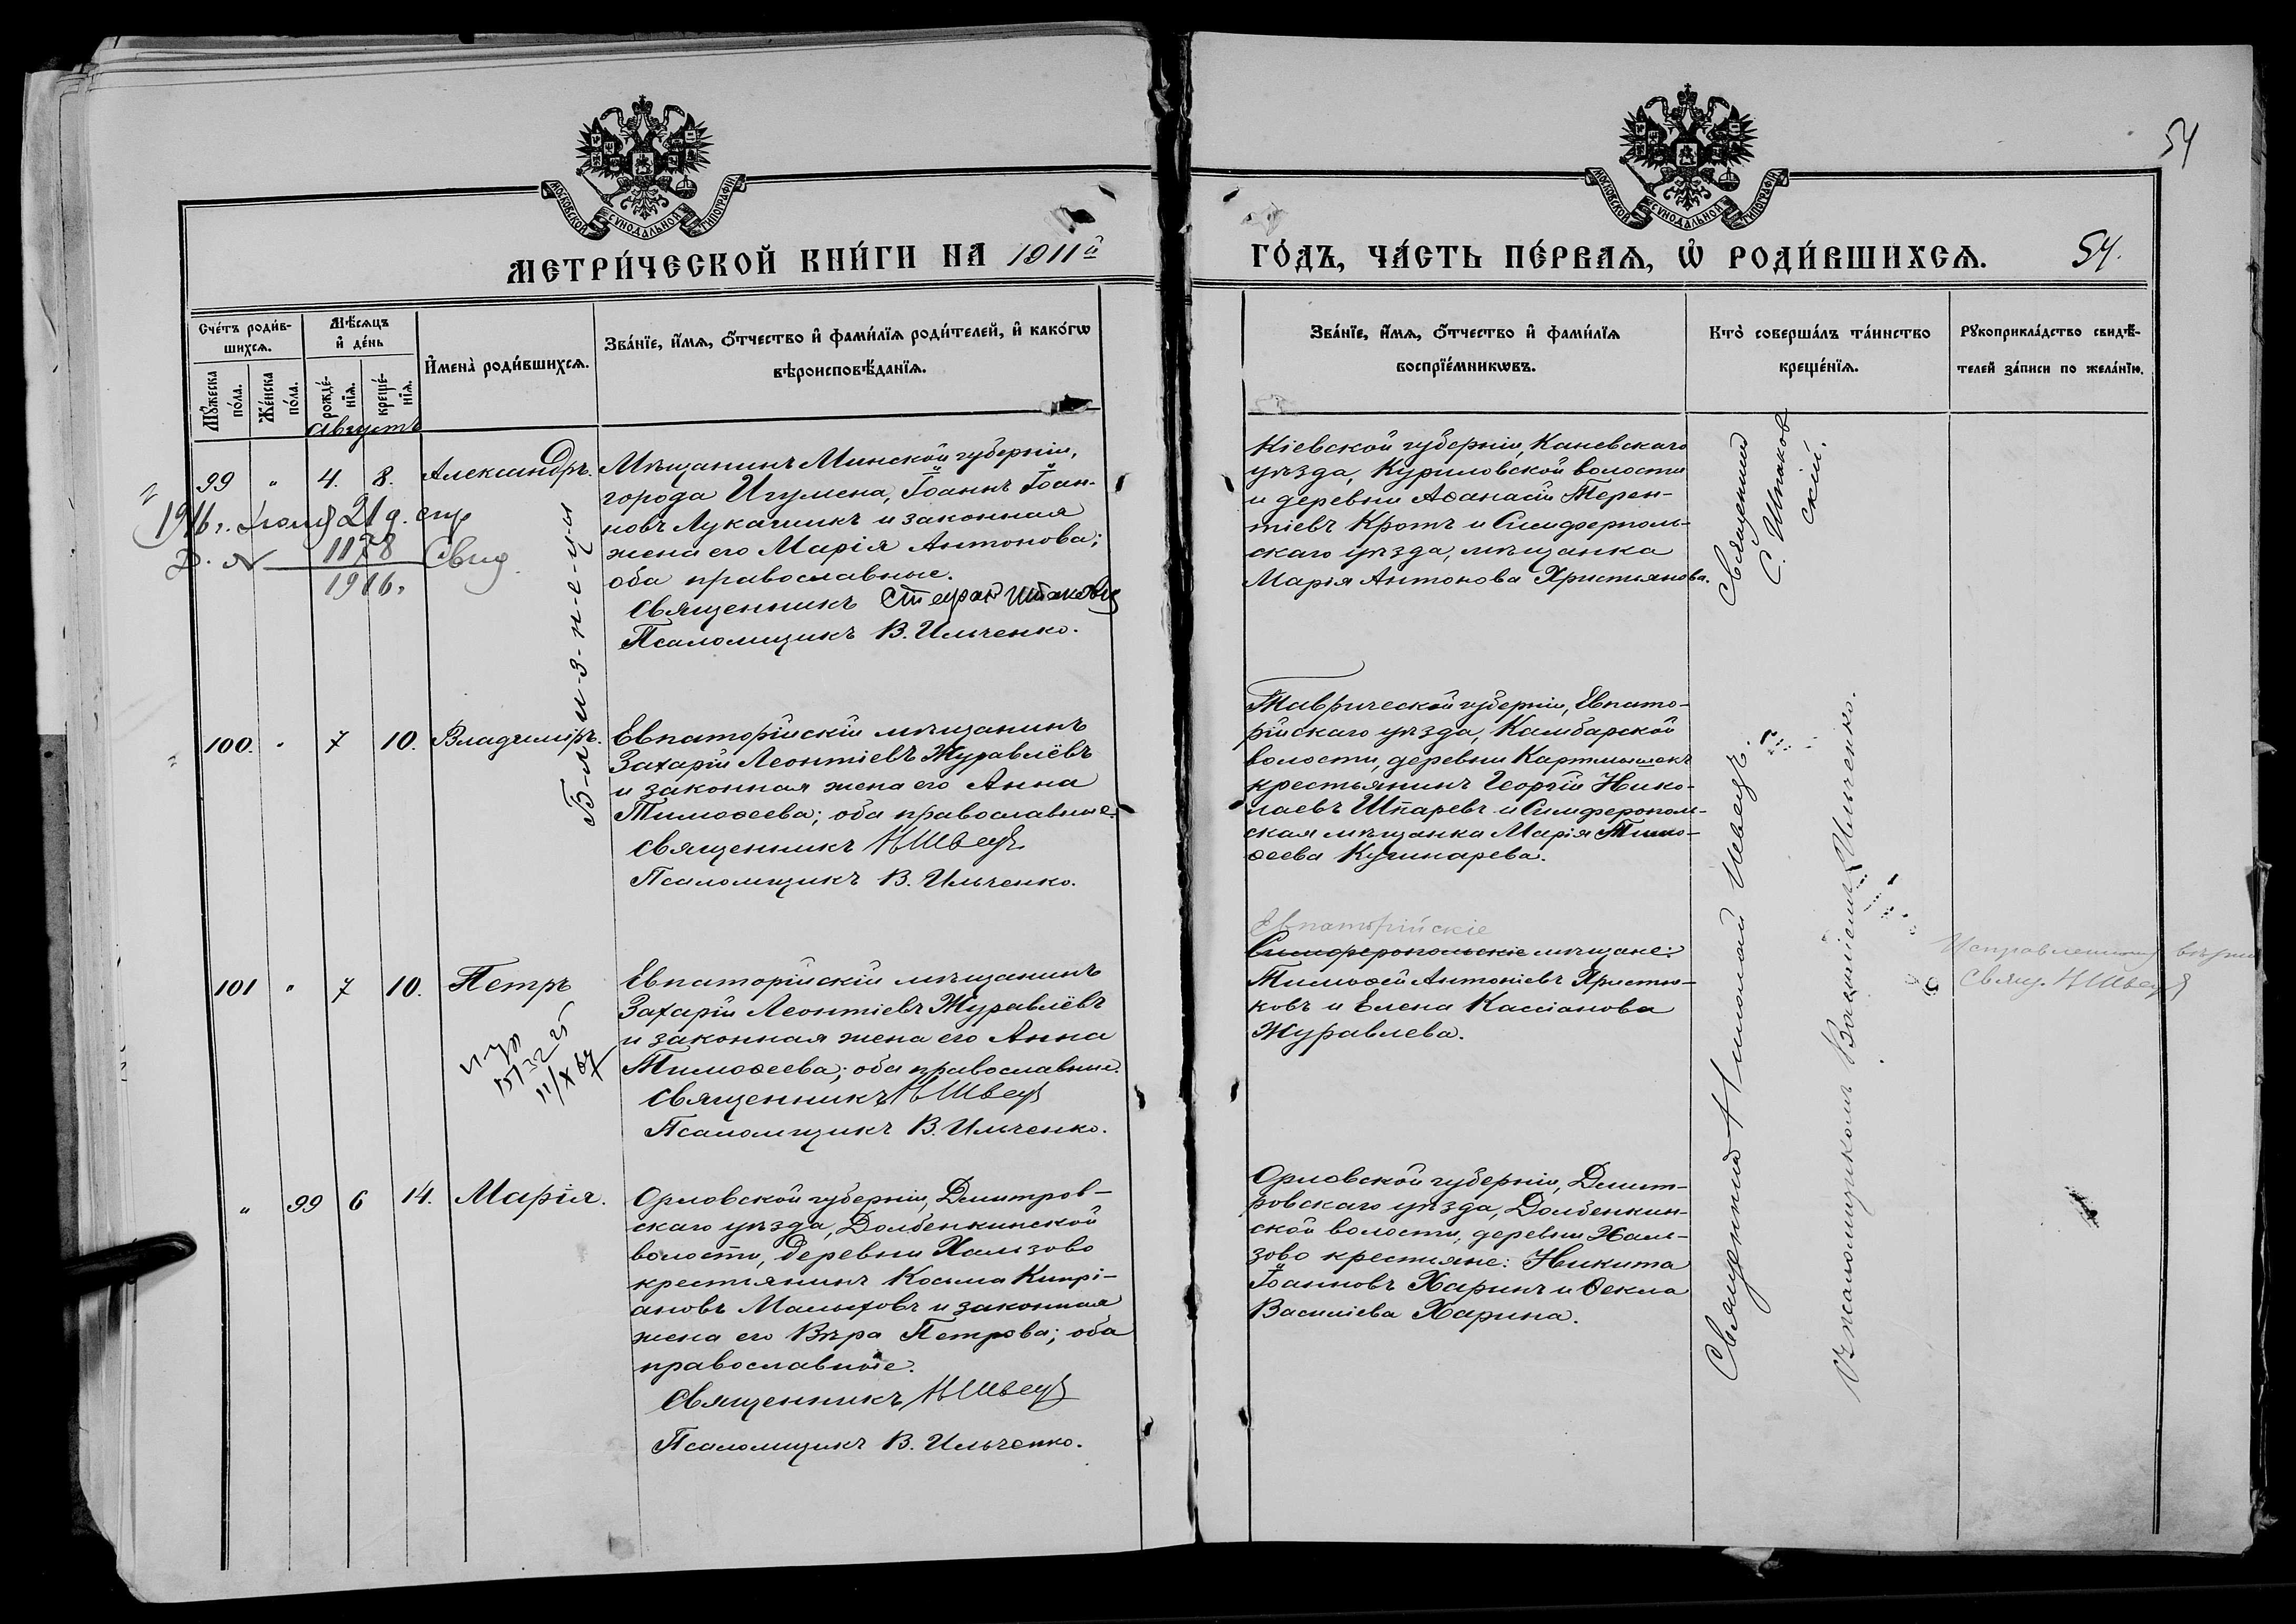 54
МОСКОВСКОЙ СѴНОДАЛЬНОЙ ТИПОГРАФІИ
МОСКОВСКОЙ СѴНОДАЛЬНОЙ ТИПОГРАФІИ
МЕТРИ́ЧЕСКОЙ КНИ́ГИ НА 1911й
ГО́ДЪ, ЧА́СТЬ ПЕ́РВАѦ, Ѡ҆ РОДИ́ВШИХСѦ. 54.
Сче́тъ роди́в-
шихсѧ.
Мꙋ́жеска по́ла.
Же́нска по́ла.
Мѣ́сѧцъ
и҆ де́нь
рожде́-
нїѧ.
креще́-
нїѧ.
И҆мена̀ роди́вшихсѧ.
Зва́нїе, и҆́мѧ, ѻ҆́тчество и҆ фами́лїѧ роди́телей, и҆ како́гѡ
вѣроисповѣ́данїѧ.
Зва́нїе, и҆́мѧ, ѻ҆́тчество и҆ фами́лїѧ
воспрїе́мникѡвъ.
Кто̀ соверша́лъ та́инство
креще́нїѧ.
Рꙋкоприкла́дство свидѣ́-
телей за́писи по жела́нїю.
Августъ
99 " 4. 8. Александръ.
Мѣщанинъ Минской губерніи,
города Игумена, Іоаннъ Іоан-
новъ Лукашикъ и законная
жена его Марія Антонова;
оба православные.
Священникъ Стефан
Псаломщикъ В. Ильченко.
1916 г. 21 д.
№ 1178 Свид.
1916.
Б-л-и-з-н-е-цы
Кіевской губерніи, Каневскаго
уѣзда, Куриловской волости
и деревни Аѳанасій Терен-
тіевъ Кротъ и Симферополь-
скаго уѣзда, мѣщанка
Марія Антонова Християнова.
Священник
С. Шпаков
скій.
100. " 7 10. Владиміръ.
Евпаторійскій мѣщанинъ
Захарій Леонтіевъ Журавлёвъ
и законная жена его Анна
Тимоѳеева; оба православные.
Священникъ Н Швецъ
Псаломщикъ В. Ильченко.
Таврической губерніи, Евпато-
рійскаго уѣзда, Камбарской
волости, деревни
крестьянинъ Георгій Нико-
лаевъ Шпаревъ и Симферополь-
ская мѣщанка Марія Тимо-
ѳеева Кушнарева.
101 " 7 10. Петръ
Евпаторійскій мѣщанинъ
Захарій Леонтіевъ Журавлёвъ
и законная жена его Анна
Тимоѳеева; оба православные.
Священникъ Н Швецъ
Псаломщикъ В. Ильченко.
Евпаторійскіе
Симферопольскіе мѣщане:
Тимоѳей Антоніевъ
и Елена Кассіанова
Журавлева.
Исправленному вѣрить
Свящ. Н Швецъ
" 99 6 14. Марія.
Орловской губерніи, Дмитров-
скаго уѣзда, Долбенкинской
волости, деревни Халзово
крестьянинъ Косма Кипрі-
ановъ Малыховъ и законная
жена его Вѣра Петрова; оба
православные.
Священникъ Н Швецъ
Псаломщикъ В. Ильченко.
Орловской губерніи, Дмит-
ровскаго уѣзда, Долбенкин-
ской волости, деревни Хал-
зово крестьяне: Никита
Іоанновъ Харинъ и Ѳекла
Василіева Харина.
Священник Николай Швецъ.
съ псаломщикомъ Василіем Ильченко.